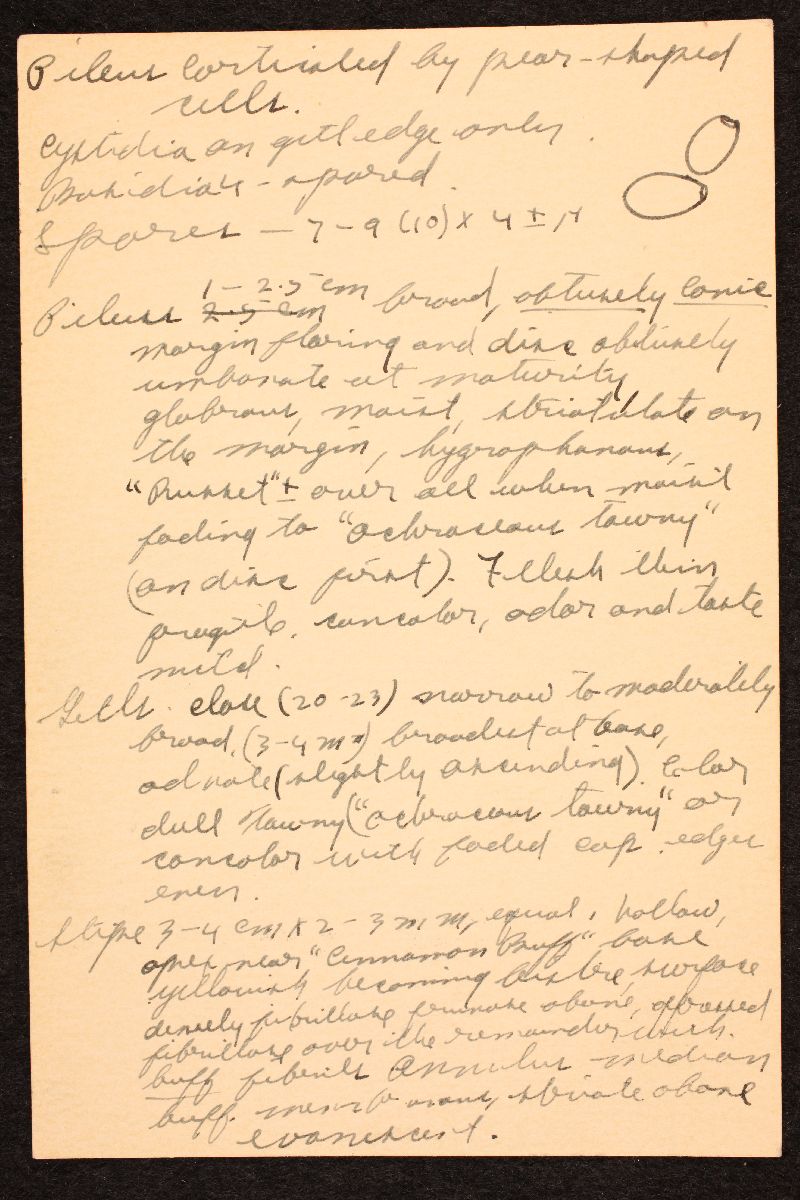 Pileus corticated by pear-shaped
cells.
Cystidia on gill edge only.
Basidia 4-spored.
Spores — 7-9 (10) x 4 ± µ
1 - 2.5 cm
Pileus 2.5 cm broad, obtusely conic
margin flaring and disc obtusely
umbonate at maturity,
glabrous, moist, striatulate on
the margin, hygrophanous,
"Russet" ± over all when moist
fading to "ochraceous tawny"
(on disc first). Flesh thin
fragile, concolor, odor and taste
mild.
Gills close (20-23) narrow to moderately
broad, (3-4 mm) broadest at base,
adnate (slightly ascending). Color
dull tawny ("ochraceous tawny" or
concolor with faded cap. edges
even.
Stipe 3-4 cm x 2-3 mm, equal, hollow,
apex near "Cinnamon Buff" base
yellowish becoming bistre, surface
densely fibrillose pruinose above, appressed
fibrillose over the remainder with
buff fibrils Annulus median
buff. membranous, striate above
evanescent.